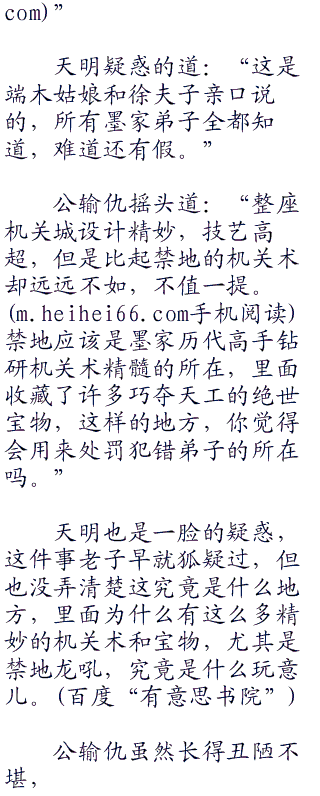 com)”
天明疑惑的道：“这是
端木姑娘和徐夫子亲口说
的，所有墨家弟子全都知
道，难道还有假。”
公输仇摇头道：“整座
机关城设计精妙，技艺高
超，但是比起禁地的机关术
却远远不如，不值一提。
(m.heihei66.com手机阅读)
禁地应该是墨家历代高手钻
研机关术精髓的所在，里面
收藏了许多巧夺天工的绝世
宝物，这样的地方，你觉得
会用来处罚犯错弟子的所在
吗。”
天明也是一脸的疑惑，
这件事老子早就狐疑过，但
也没弄清楚这究竟是什么地
方，里面为什么有这么多精
妙的机关术和宝物，尤其是
禁地龙吼，究竟是什么玩意
儿。(百度“有意思书院”)
公输仇虽然长得丑陋不
堪，